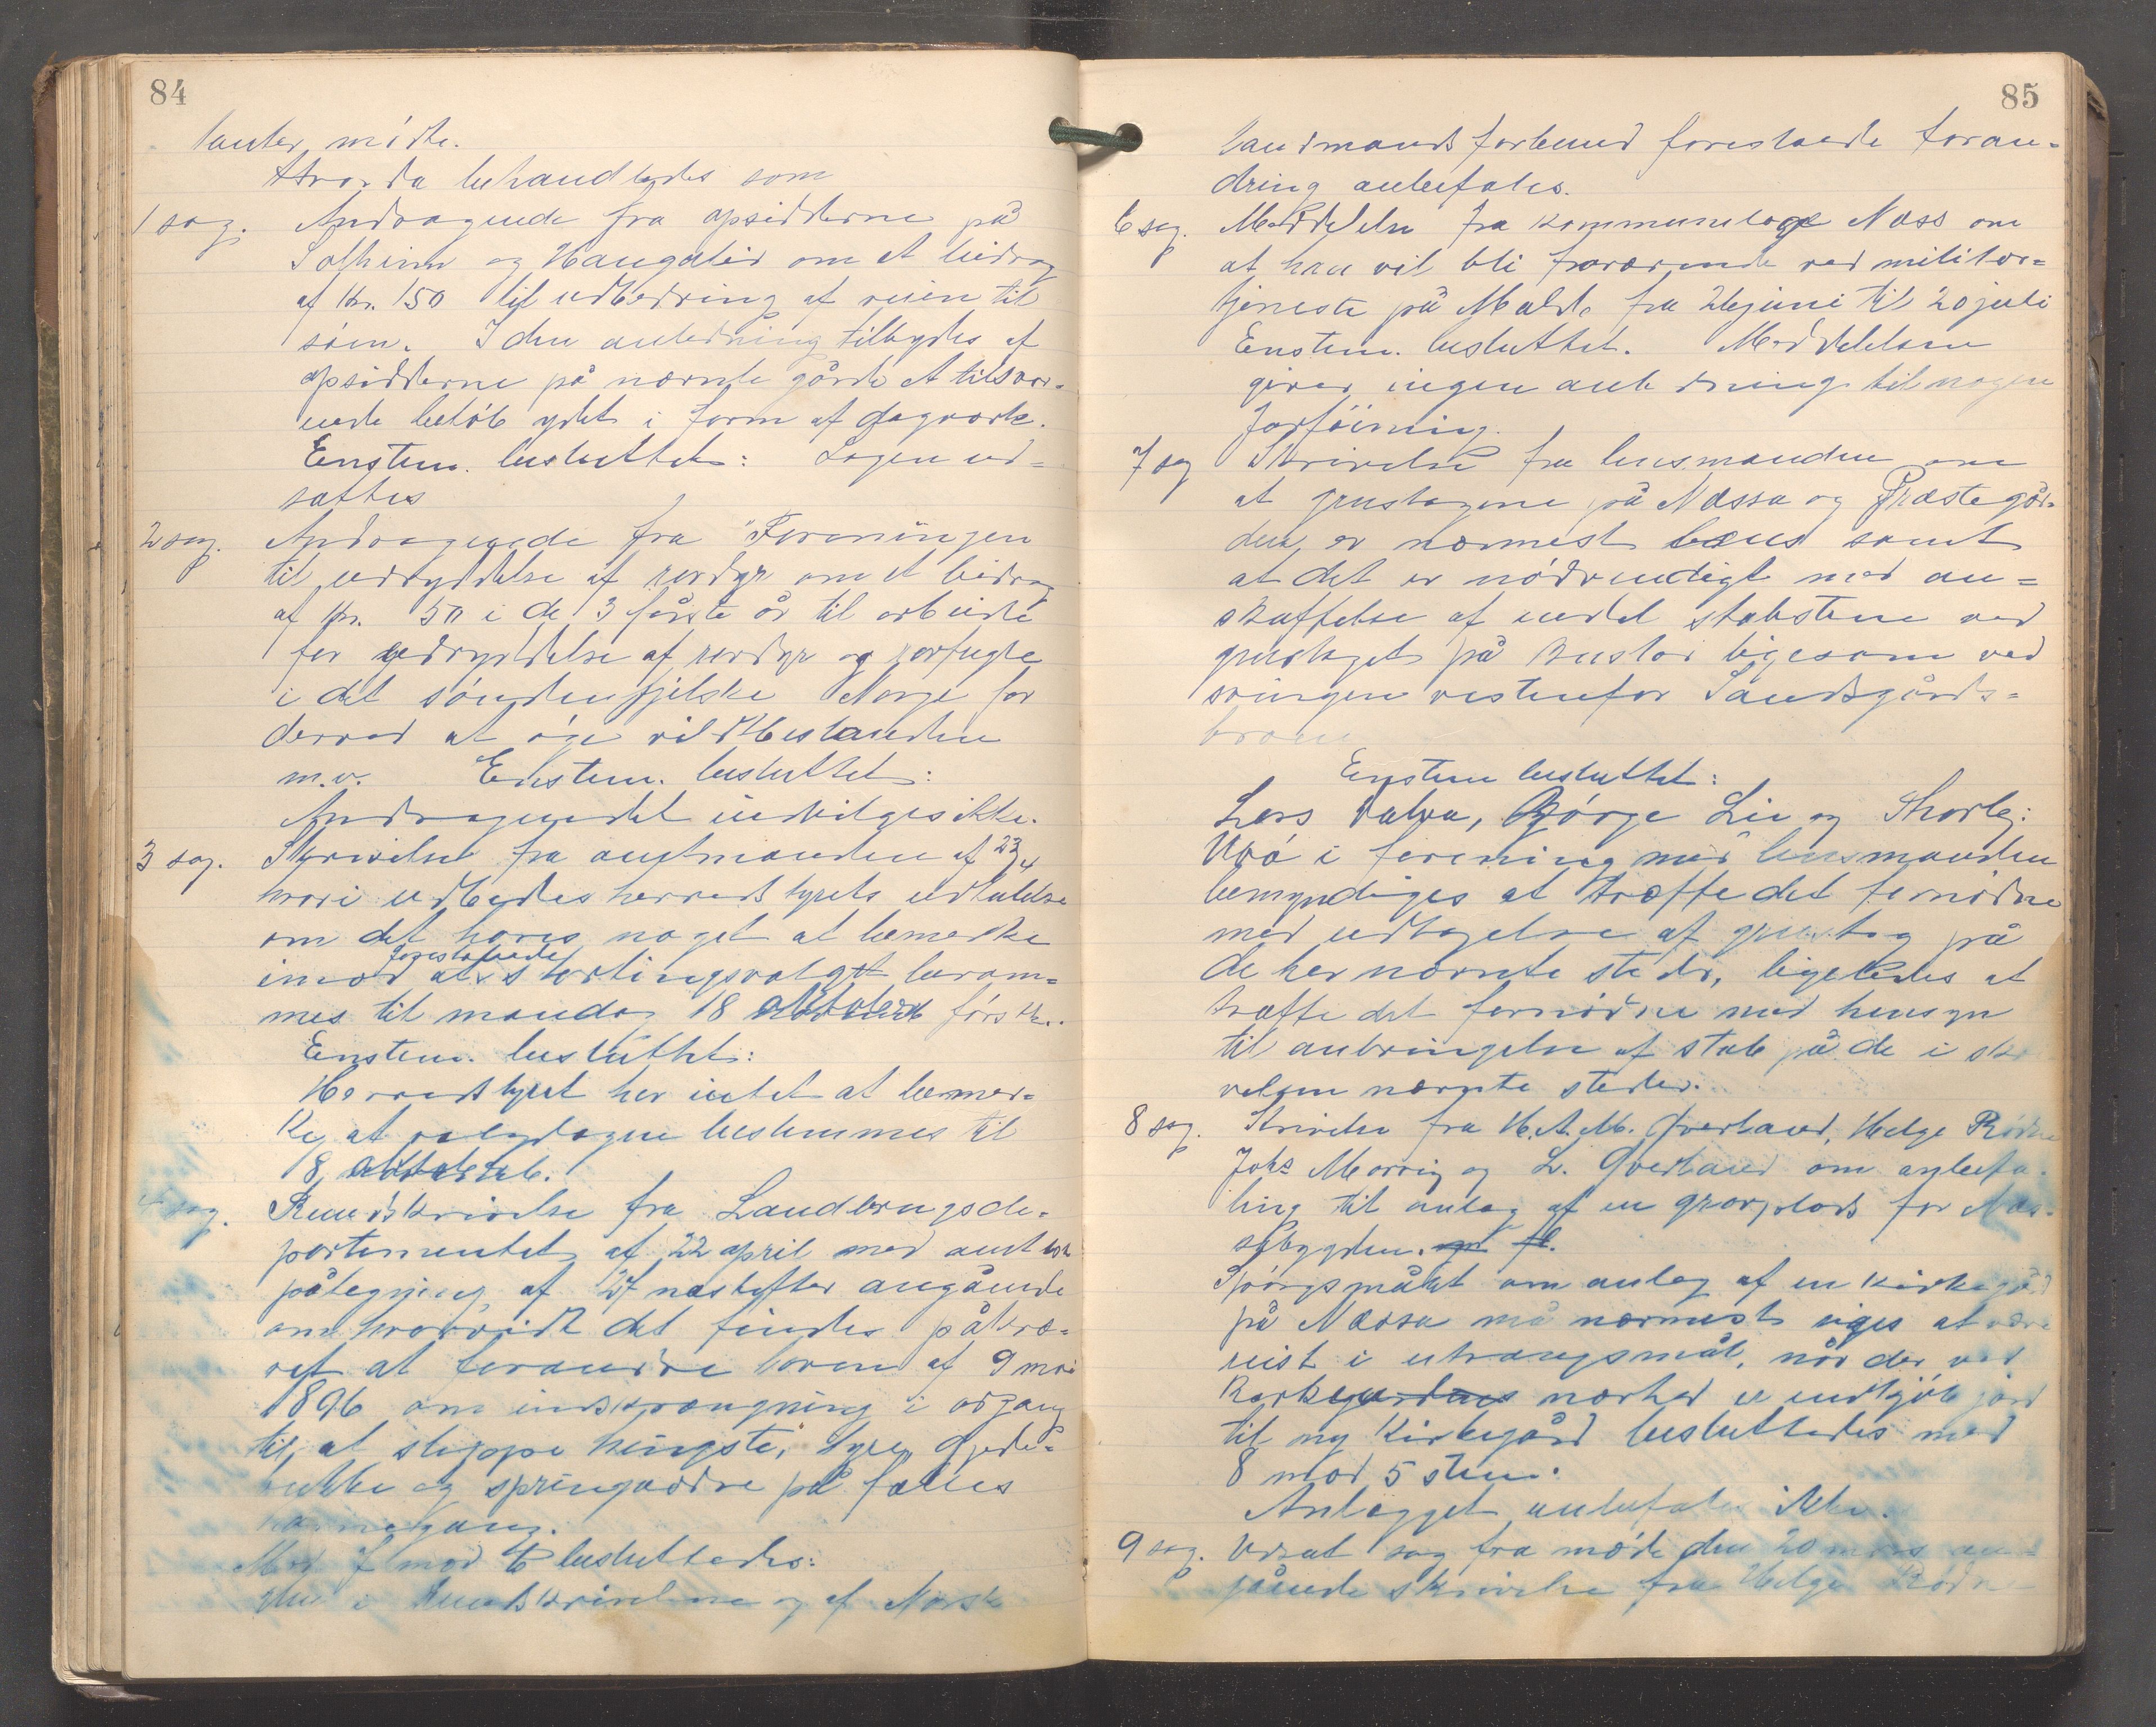 84
tanter mödte.
Hvorda behandledes som
1 sag. Andragende fra opsidderne på
Solheim og Haugalid om et bidrag
af Kr. 150 til udbedring af veien til
søen. I den anledning tilbydes af
opsidderne på nævnte gårde et tilsva-
rende beløb ydet i form af dagværk.
Enstem. besluttet: Sagen ud-
sættes
2 sag. Andragende fra "Foreningen
til udryddelse af rovdyr om et bidrag
af Kr. 50 i de 3 første år til arbeide
for udryddelse af rovdyr og rovfugle
i det søndenfjelske Norge for
derved at øge vildtbestanden
m.v. Enstem. besluttet:
Andragendet indvilges ikke.
3 sag. Skrivelse fra amtmanden af 23/4
hvori udbedes herredstyrets udtalelse
om det haves noget at bemærke
imod at forestående stortingsvalget beram-
mes til mandag 18 oktober førstk.
Enstem. besluttet:
Herredstyret har intet at bemær-
ke, at valgdagen bestemmes til
18 oktober.
4 sag. Rundskrivelse fra Landbrugsde-
partementet af 22 april med amtets
påtegning af 27 næstefter angående
om hvorvidt det findes påkræ-
vet at forandre loven af 9 mai
1896 om indskrænkning i adgang
til at slippe hingste, tyre, gjede-
bukke og springvædre på fælles
havnegang.
Med 7 mod 6 besluttedes:
Den i Rundskrivelsen og af Norsk
85
Landmandsforbund foreslaaede foran-
dring anbefales.
6 sag. Meddelelse fra kommunelæge Næss om
at han vil bli fraværende ved militær-
tjeneste på Malde fra 26 juni til 20 juli
Enstem. besluttet. Meddelelsen
giver ingen anledning til nogen
forföining.
7 sag Skrivelse fra lensmanden om
at grustagene på Næssa og Præstegår-
den er nærmest læns samt
at det er nödvendigt med an-
skaffelse af endel stabstene ved
grustaget på ligesom ved
svingen vestenfor Sandsgårds-
broen
Enstem besluttet:
Lars Valva, Børge Lie og Thorlg:
Vrå i forening med lensmanden
bemyndiges at træffe det fornødne
med udtagelse af grustag på
de her nævnte steder, ligeledes at
træffe det fornødne med hensyn
til anbringelse af stab på de i skri
velsen nævnte steder.
8 sag. Skrivelse fra H. A. M. Qverland, Helge
Johs Morvig og L. Qverland om anbefa-
ling til anlæg af en gravplads for Næs-
sabygden.
Spörgsmålet om anlæg af en kirkegård
på Næssa må nærmest siges at være
reist i utrængsmål, når der ved
Kirkegårdens nærhed er indkjøb jord
til ny Kirkegård besluttedes med
8 mod 5 stem.
Anlægget anbefales ikke.
9 sag. Udsat sag fra møde den 20 mars an-
gående skrivelse fra Helge